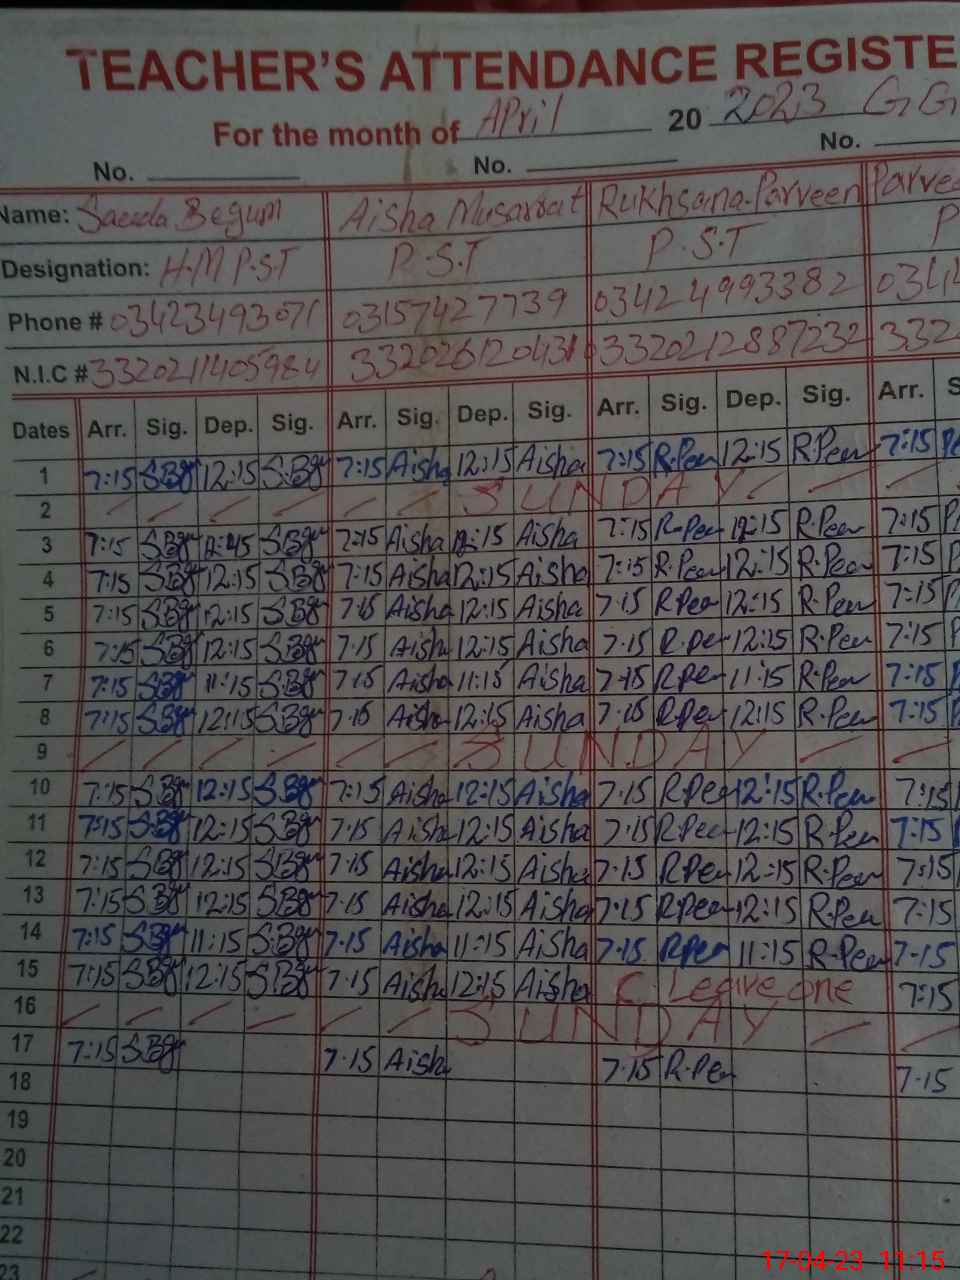 TEACHER'S ATTENDANCE REGISTE
For the month of April 20 2023 G G
No. No. No.
Name: Saeeda Begum Aisha Musarrat Rukhsana Parveen Parvee
Designation: H.M P.S.T P.S.T P.S.T P
Phone # 03423493071 03157427739 03424993382 0344
N.I.C # 3320211405984 3320261204316 3320212887232 332
Dates Arr. Sig. Dep. Sig. Arr. Sig. Dep. Sig. Arr. Sig. Dep. Sig. Arr. S
1 7:15 S.Bgm 12:15 S.Bgm 7:15 Aisha 12:15 Aisha 7:15 R.Peen 12:15 R.Peen 7:15
2 SUNDAY
3 7:15 S.Bgm 12:45 S.Bgm 7:15 Aisha 12:15 Aisha 7:15 R.Peen 12:15 R.Peen 7:15
4 7:15 S.Bgm 12:15 S.Bgm 7:15 Aisha 12:15 Aisha 7:15 R.Peen 12:15 R.Peen 7:15
5 7:15 S.Bgm 12:15 S.Bgm 7:15 Aisha 12:15 Aisha 7:15 R.Peen 12:15 R.Peen 7:15
6 7:15 S.Bgm 12:15 S.Bgm 7:15 Aisha 12:15 Aisha 7:15 R.Peen 12:15 R.Peen 7:15
7 7:15 S.Bgm 11:15 S.Bgm 7:15 Aisha 11:15 Aisha 7:15 R.Peen 11:15 R.Peen 7:15
8 7:15 S.Bgm 12:15 S.Bgm 7:15 Aisha 12:15 Aisha 7:15 R.Peen 12:15 R.Peen 7:15
9 SUNDAY
10 7:15 S.Bgm 12:15 S.Bgm 7:15 Aisha 12:15 Aisha 7:15 R.Peen 12:15 R.Peen 7:15
11 7:15 S.Bgm 12:15 S.Bgm 7:15 Aisha 12:15 Aisha 7:15 R.Peen 12:15 R.Peen 7:15
12 7:15 S.Bgm 12:15 S.Bgm 7:15 Aisha 12:15 Aisha 7:15 R.Peen 12:15 R.Peen 7:15
13 7:15 S.Bgm 12:15 S.Bgm 7:15 Aisha 12:15 Aisha 7:15 R.Peen 12:15 R.Peen 7:15
14 7:15 S.Bgm 11:15 S.Bgm 7:15 Aisha 11:15 Aisha 7:15 R.Peen 11:15 R.Peen 7:15
15 7:15 S.Bgm 12:15 S.Bgm 7:15 Aisha 12:15 Aisha C. Leave one 7:15
16 SUNDAY
17 7:15 S.Bgm 7:15 Aisha 7:15 R.Peen 7:15
18
19
20
21
22
23
17-04-23 11:15